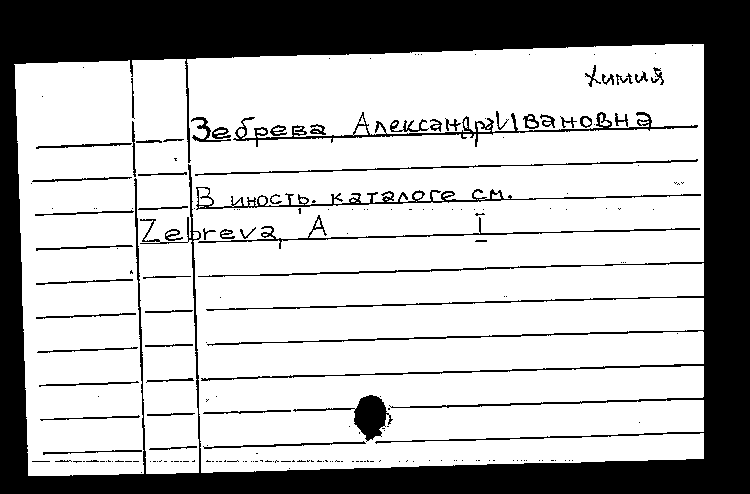 Химия
Зебрева, Александра Ивановна
В иностр. каталоге см.
Zebreva, A I